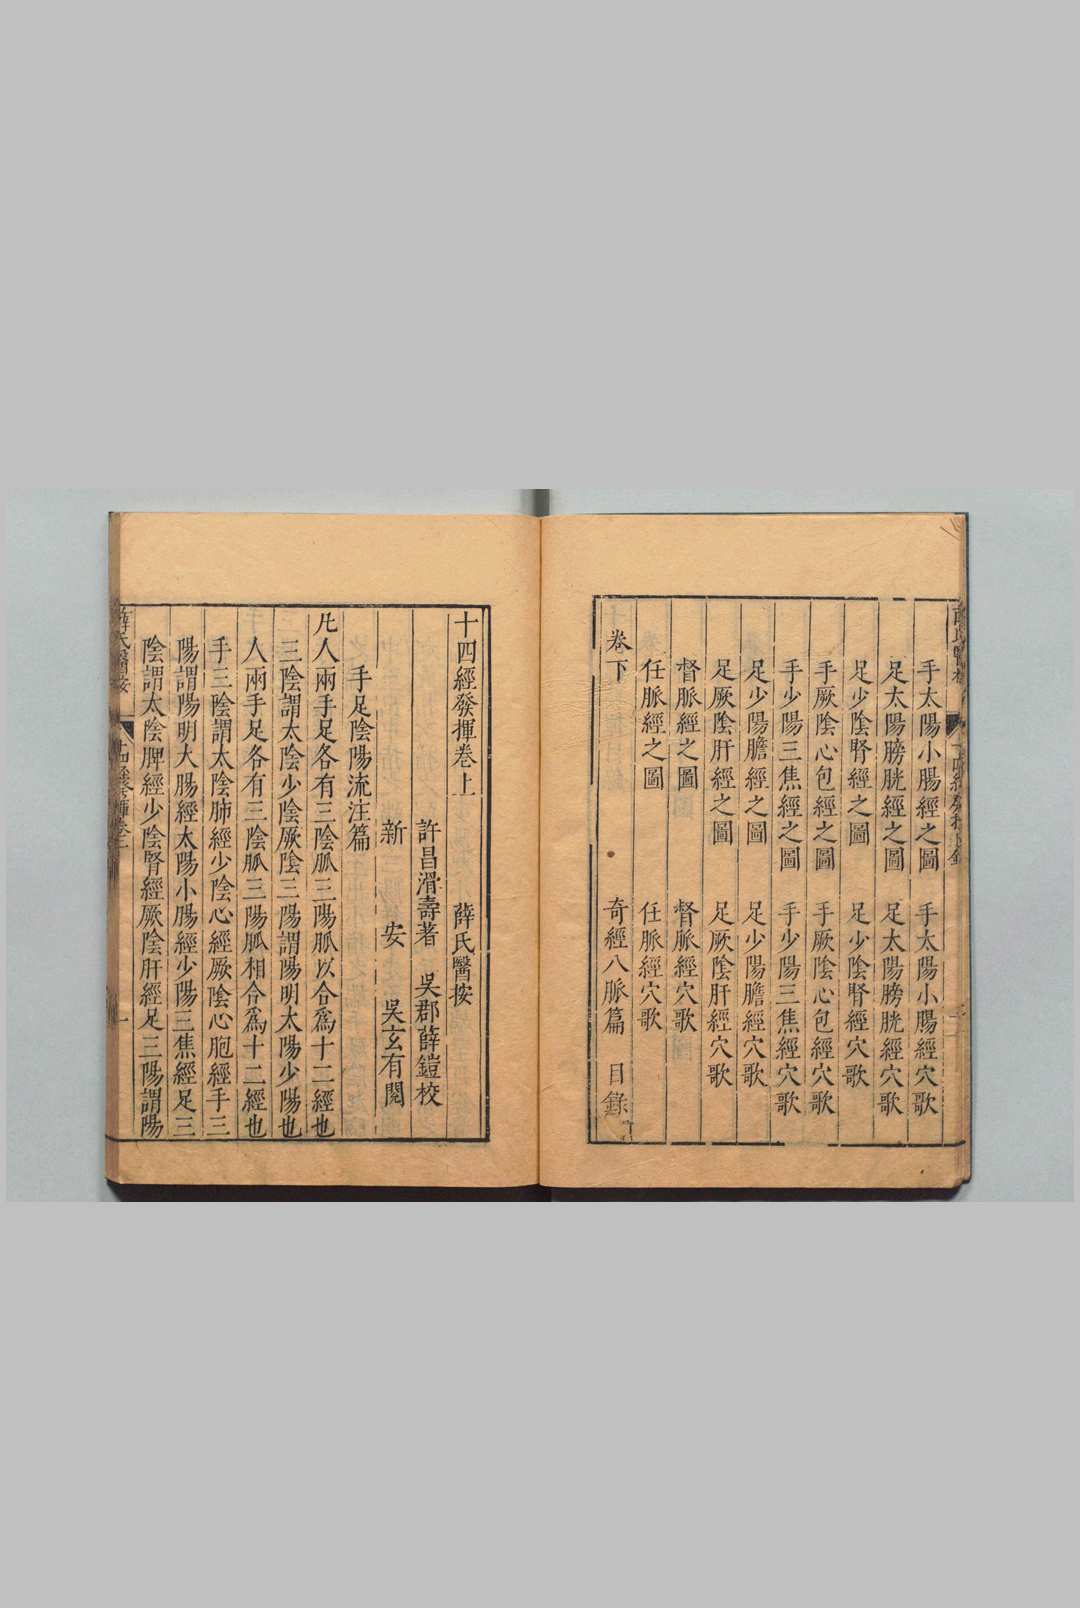 手太陽小腸經之圖　手太陽小腸經穴歌
足太陽膀胱經之圖　足太陽膀胱經穴歌
足少陰腎經之圖　足少陰腎經穴歌
手厥陰心包經之圖　手厥陰心包經穴歌
手少陽三焦經之圖　手少陽三焦經穴歌
足少陽膽經之圖　足少陽膽經穴歌
足厥陰肝經之圖　足厥陰肝經穴歌
督脈經之圖　督脈經穴歌
任脈經之圖　任脈經穴歌
卷下　奇經八脈篇　目錄
十四經發揮卷上　薛氏醫按
許昌滑壽著　吳郡薛鎧校
新安　吳玄有閱
手足陰陽流注篇
凡人兩手足各有三陰脈三陽脈以合爲十二經也
三陰謂太陰少陰厥陰三陽謂陽明太陽少陽也
人兩手足各有三陰脈三陽脈相合爲十二經也
手三陰謂太陰肺經少陰心經厥陰心胞經手三
陽謂陽明大腸經太陽小腸經少陽三焦經足三
陰謂太陰脾經少陰腎經厥陰肝經足三陽謂陽
薛氏醫按　十四經發揮卷上　一